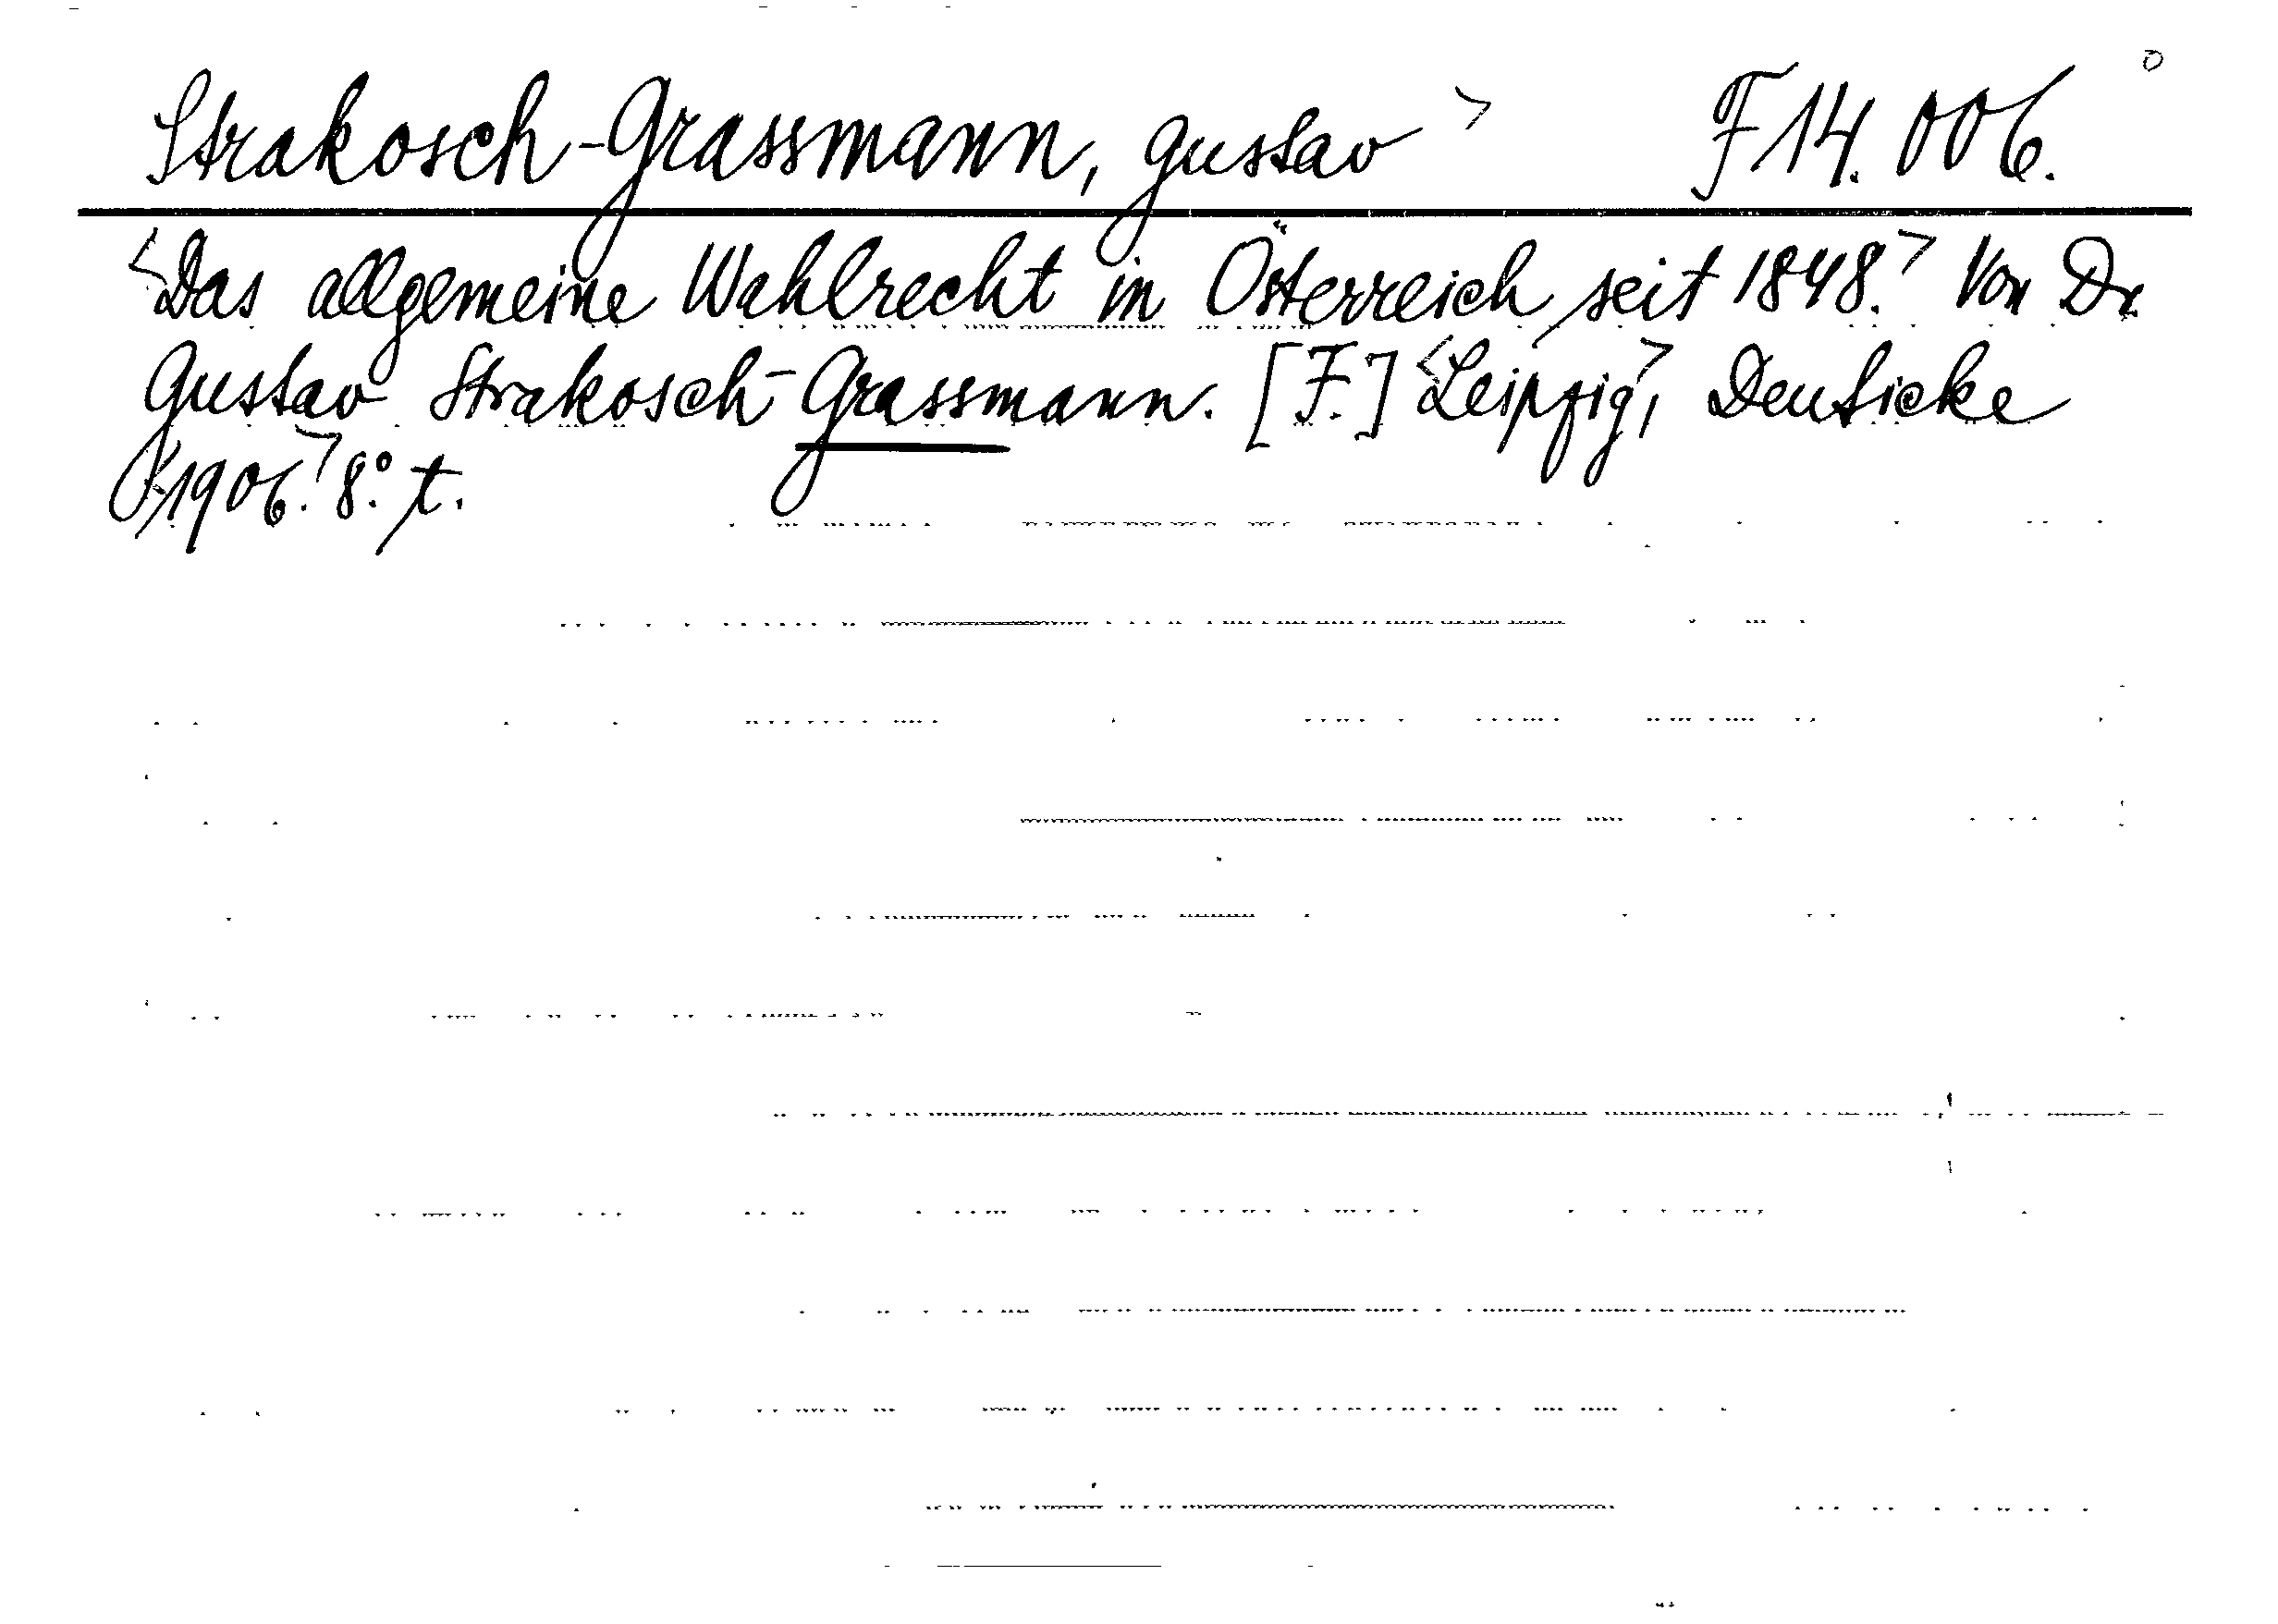 Strakosch-Grassmann, Gustav> F 14.006.
<Das allgemeine Wahlrecht in Österreich seit 1848.> Von Dr.
Gustav Strakosch-Grassmann. [F.] <Leipzig>, Deuticke
<1906.> 8.° t.